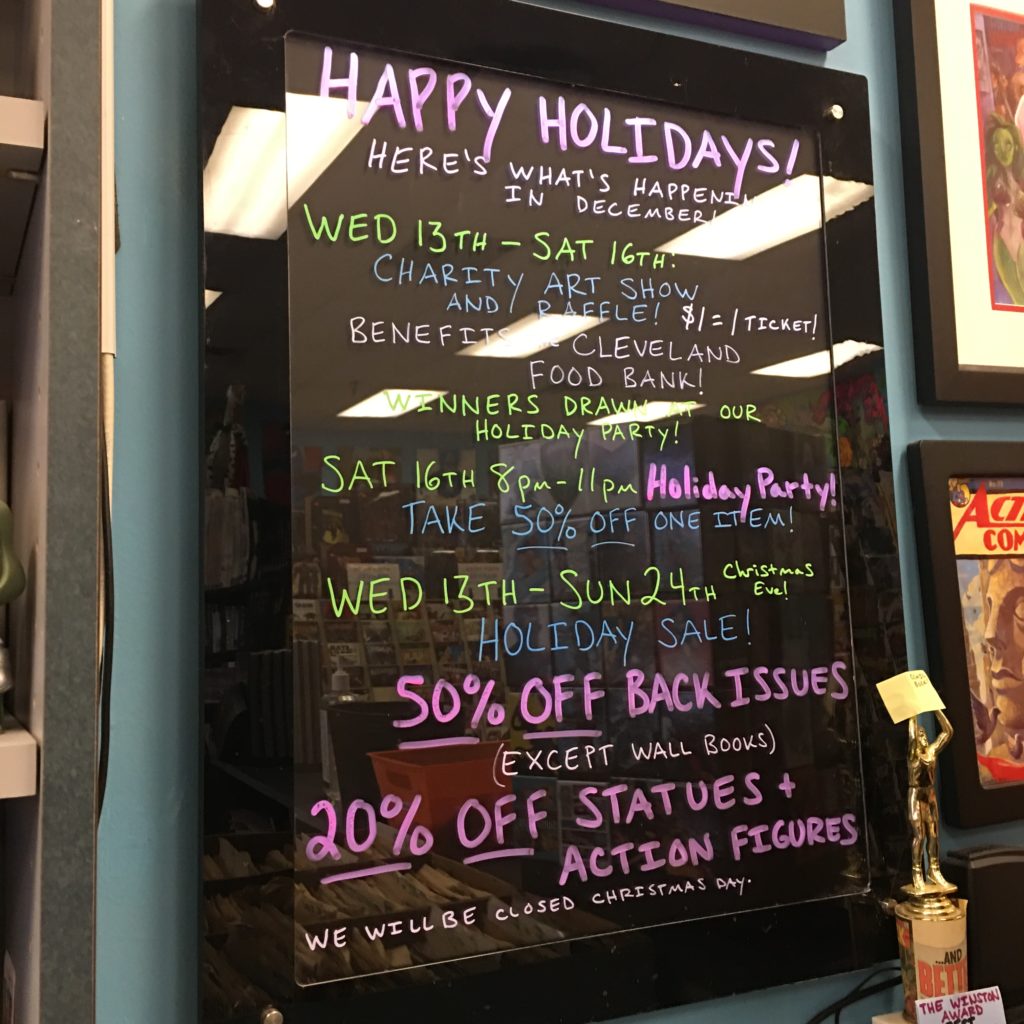 HAPPY HOLIDAYS!
HERE'S WHAT'S
IN DECEMBER!
WED 13TH - SAT 16TH:
CHARITY ART SHOW
AND RAFFLE! $1 = 1 TICKET!
BENEFITS CLEVELAND
FOOD BANK!
WINNERS DRAWN AT OUR
HOLIDAY PARTY!
SAT 16TH 8pm - 11pm Holiday Party!
TAKE 50% OFF ONE ITEM!
WED 13TH - SUN 24TH Christmas
Eve!
HOLIDAY SALE!
50% OFF BACK ISSUES
(EXCEPT WALL BOOKS)
20% OFF STATUES +
ACTION FIGURES
WE WILL BE CLOSED CHRISTMAS DAY.
...AND
THE WINSTON
AWARD